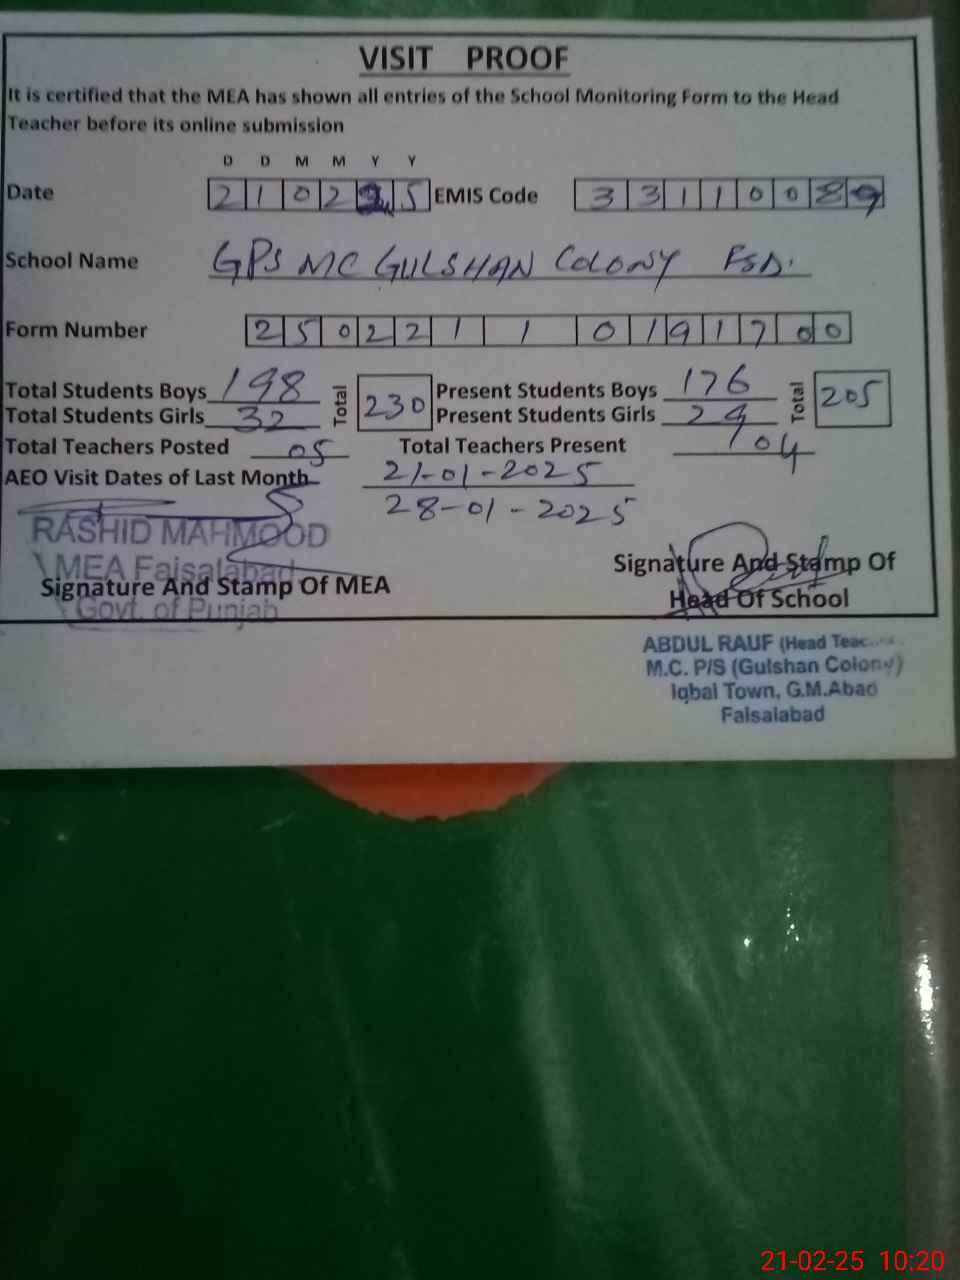 VISIT PROOF
It is certified that the MEA has shown all entries of the School Monitoring Form to the Head
Teacher before its online submission
D D M M Y Y
Date 2 1 0 2 2 5 EMIS Code 3 3 1 1 0 0 8 9
School Name GPS MC GULSHAN COLONY FSD.
Form Number 2 5 0 2 2 1 1 0 1 9 1 7 0 0
Total Students Boys 198 Total 230 Present Students Boys 176 Total 205
Total Students Girls 32 Present Students Girls 29
Total Teachers Posted 05 Total Teachers Present 04
AEO Visit Dates of Last Month 21-01-2025
28-01-2025
RASHID MAHMOOD
MEA Faisalabad
Govt. of Punjab
Signature And Stamp Of MEA
Signature And Stamp Of
Head Of School
ABDUL RAUF (Head
M.C. P/S (Gulshan Colony)
Iqbal Town, G.M.Abad
Faisalabad
21-02-25 10:20